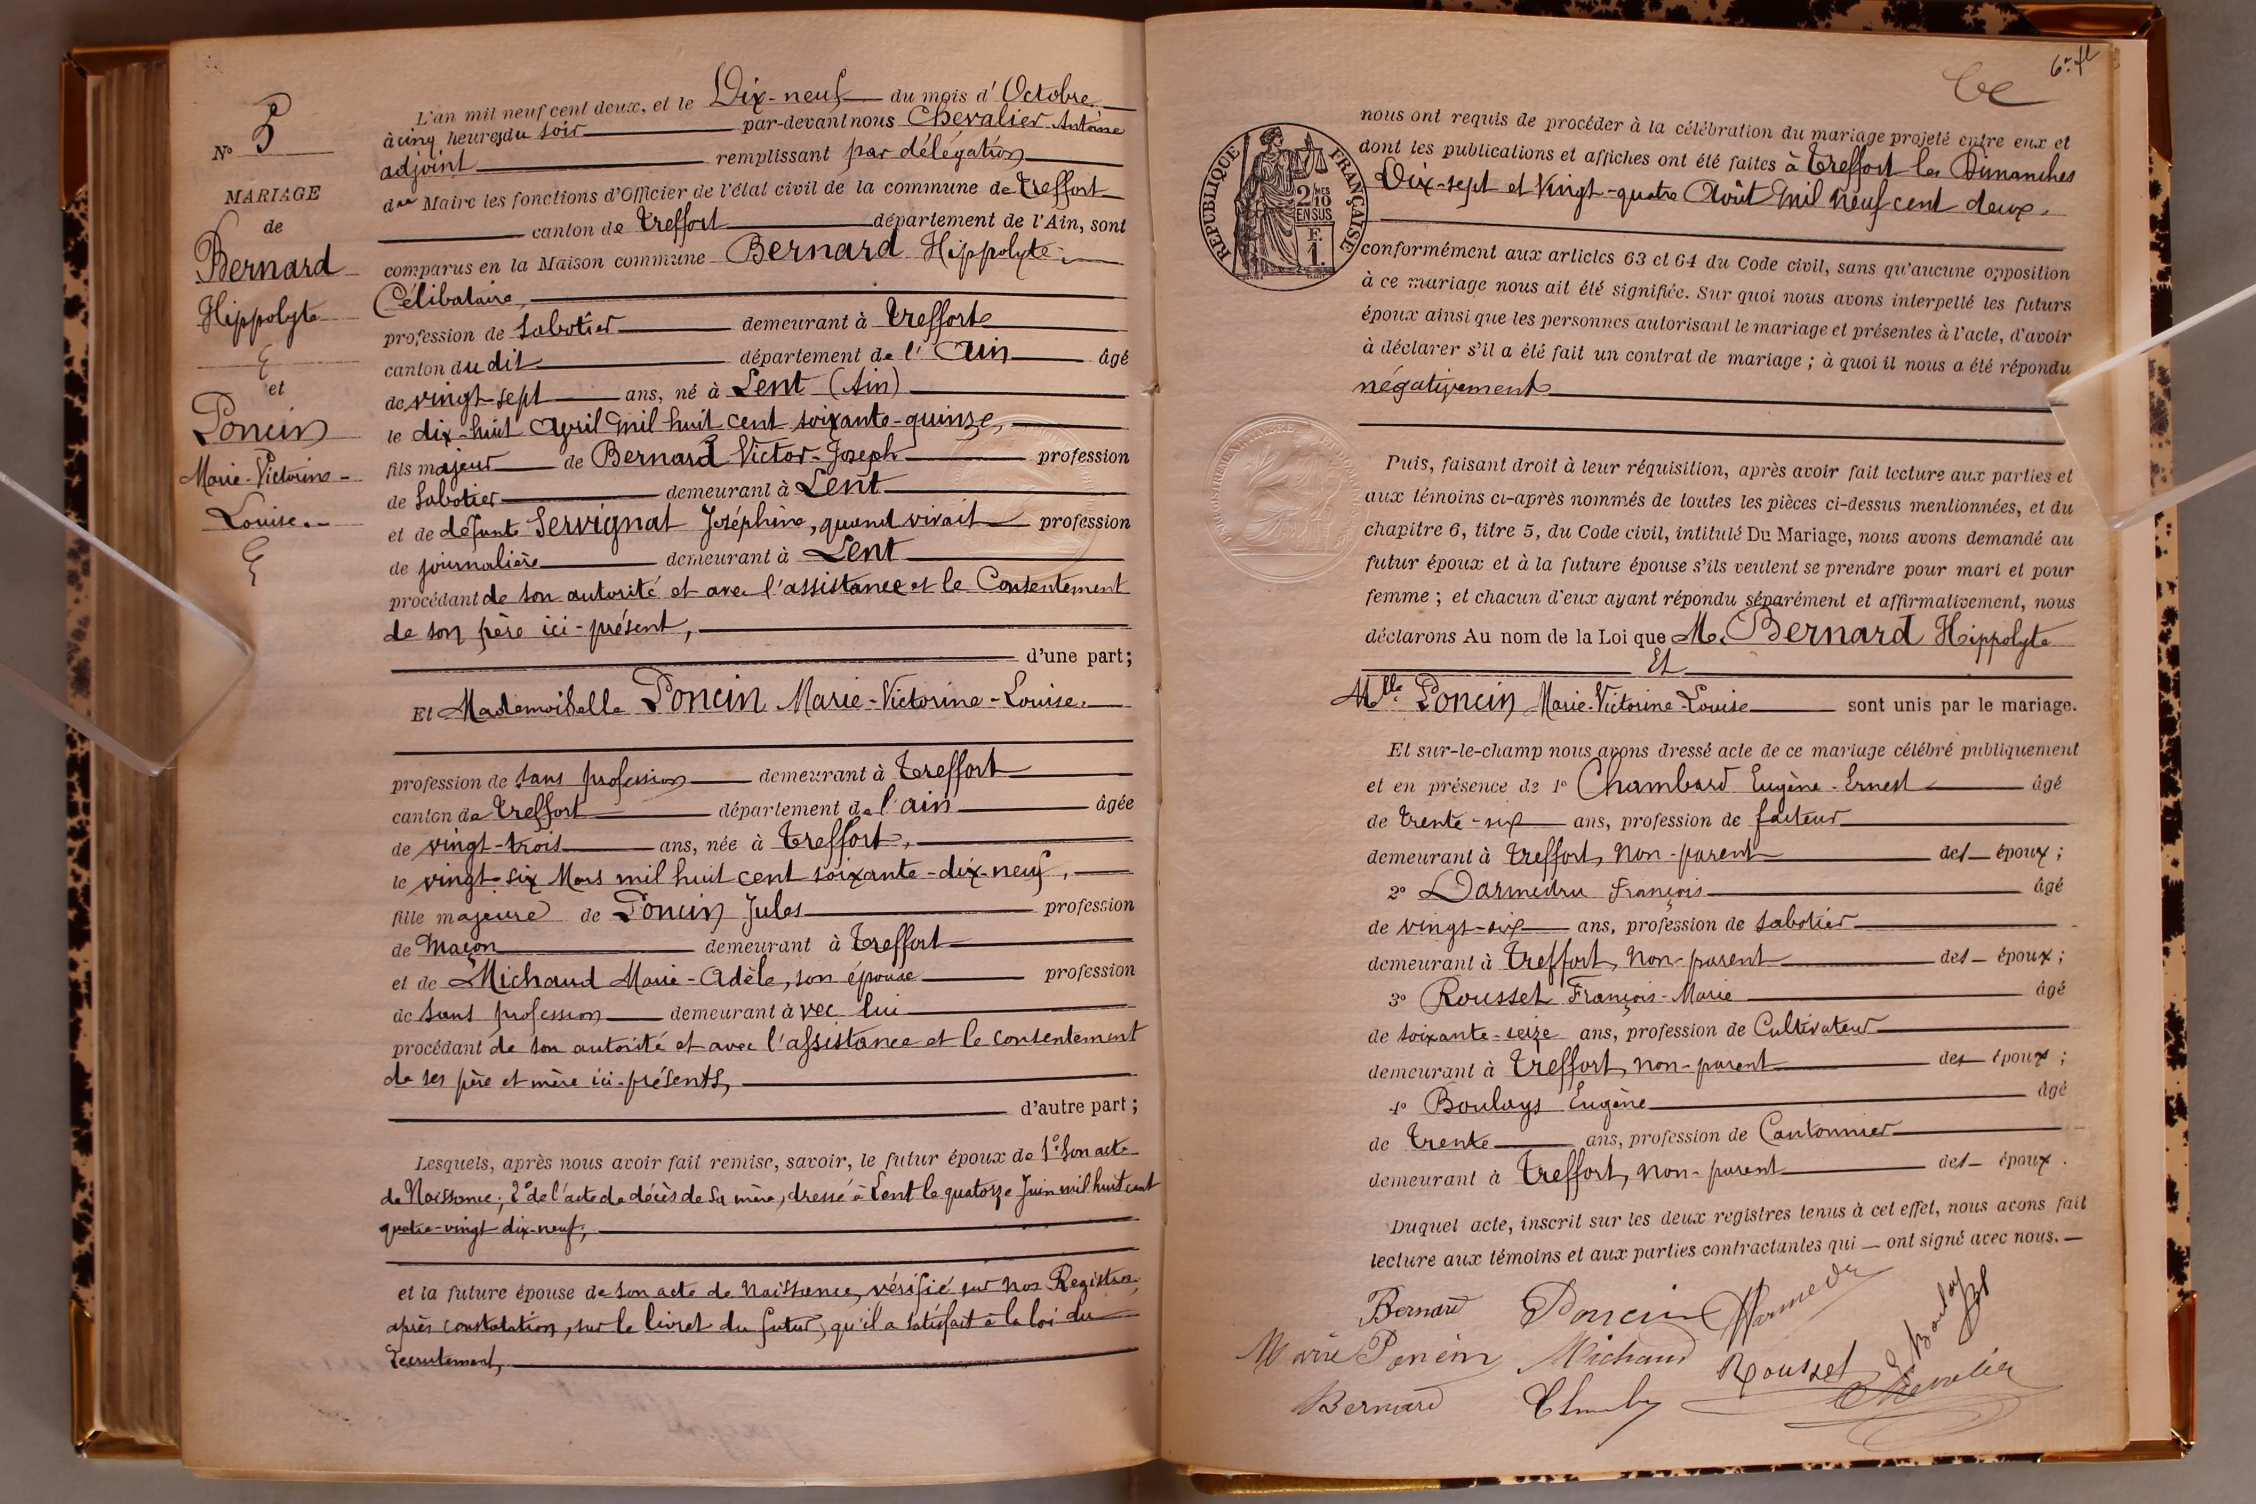 N° 5
MARIAGE
de
Bernard
Hippolyte
et
Poncin
Marie-Victorine-
Louise.
L'an mil neuf cent deux, et le Dix-neuf du mois d'Octobre
à cinq heures du soir par-devant nous Chevalier Antoine
adjoint remplissant par délégation
du Maire les fonctions d'Officier de l'état civil de la commune de Treffort
canton de Treffort département de l'Ain, sont
comparus en la Maison commune Bernard Hippolyte
Célibataire,
profession de Sabotier demeurant à Treffort
canton du dit département de l'Ain âgé
de vingt-sept ans, né à Lent (Ain)
le dix-huit Avril mil huit cent soixante-quinze,
fils majeur de Bernard Victor-Joseph profession
de Sabotier demeurant à Lent
et de défunte Servignat Joséphine, quand vivait profession
de journalière demeurant à Lent
procédant de son autorité et avec l'assistance et le Consentement
de son père ici-présent,
d'une part;
Et Mademoiselle Poncin Marie-Victorine-Louise.
profession de sans profession demeurant à Treffort
canton de Treffort département de l'ain âgée
de vingt-trois ans, née à Treffort,
le vingt-six Mars mil huit cent soixante-dix-neuf,
fille majeure de Poncin Jules profession
de Maçon demeurant à Treffort
et de Michaud Marie-Adèle, son épouse profession
de sans profession demeurant à vec lui
procédant de son autorité et avec l'assistance et le consentement
de ses père et mère ici-présents,
d'autre part;
Lesquels, après nous avoir fait remise, savoir, le futur époux de 1° Son acte
de Naissance; 2° de l'acte de décès de sa mère, dressé à Lent le quatorze Juin mil huit cent
quatre-vingt dix-neuf;
et la future épouse de son acte de Naissance, vérifié sur nos Registres,
après constatation, sur le livret du futur, qu'il a satisfait à la loi du
recrutement,
6e
RÉPUBLIQUE FRANÇAISE
2/10 MES
EN SUS
F.
1.
nous ont requis de procéder à la célébration du mariage projeté entre eux et
dont les publications et affiches ont été faites à Treffort les Dimanches
Dix-sept et Vingt-quatre Août mil neuf cent deux,
conformément aux articles 63 et 64 du Code civil, sans qu'aucune opposition
à ce mariage nous ait été signifiée. Sur quoi nous avons interpellé les futurs
époux ainsi que les personnes autorisant le mariage et présentes à l'acte, d'avoir
à déclarer s'il a été fait un contrat de mariage; à quoi il nous a été répondu
négativement
Puis, faisant droit à leur réquisition, après avoir fait lecture aux parties et
aux témoins ci-après nommés de toutes les pièces ci-dessus mentionnées, et du
chapitre 6, titre 5, du Code civil, intitulé Du Mariage, nous avons demandé au
futur époux et à la future épouse s'ils veulent se prendre pour mari et pour
femme; et chacun d'eux ayant répondu séparément et affirmativement, nous
déclarons Au nom de la Loi que M. Bernard Hippolyte
Et
Mlle Poncin Marie-Victorine-Louise sont unis par le mariage.
Et sur-le-champ nous avons dressé acte de ce mariage célébré publiquement
et en présence de 1° Chambard Eugène-Ernest âgé
de trente-six ans, profession de facteur
demeurant à Treffort, non-parent des époux;
2° Darmedru François âgé
de vingt-six ans, profession de Sabotier
demeurant à Treffort, non-parent des époux;
3° Rousset François-Marie âgé
de soixante-seize ans, profession de Cultivateur
demeurant à Treffort, non-parent des époux;
4° Boulays Eugène âgé
de trente ans, profession de Cantonnier
demeurant à Treffort, non-parent des époux.
Duquel acte, inscrit sur les deux registres tenus à cet effet, nous avons fait
lecture aux témoins et aux parties contractantes qui ont signé avec nous.
Bernard Poncin
Marie Poncin Michaud Rousset E. Boulays
Bernard Chevalier